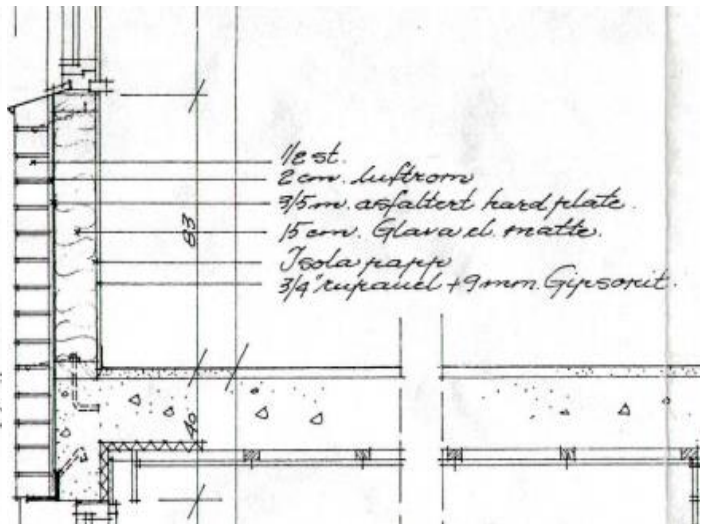 1/2 st.
2 cm. luftrom
3/5 m. asfaltert hard plate.
15 cm. Glava el. matte.
Isola papp
3/4" rupanel + 9 mm. Gipsonit.
83
40